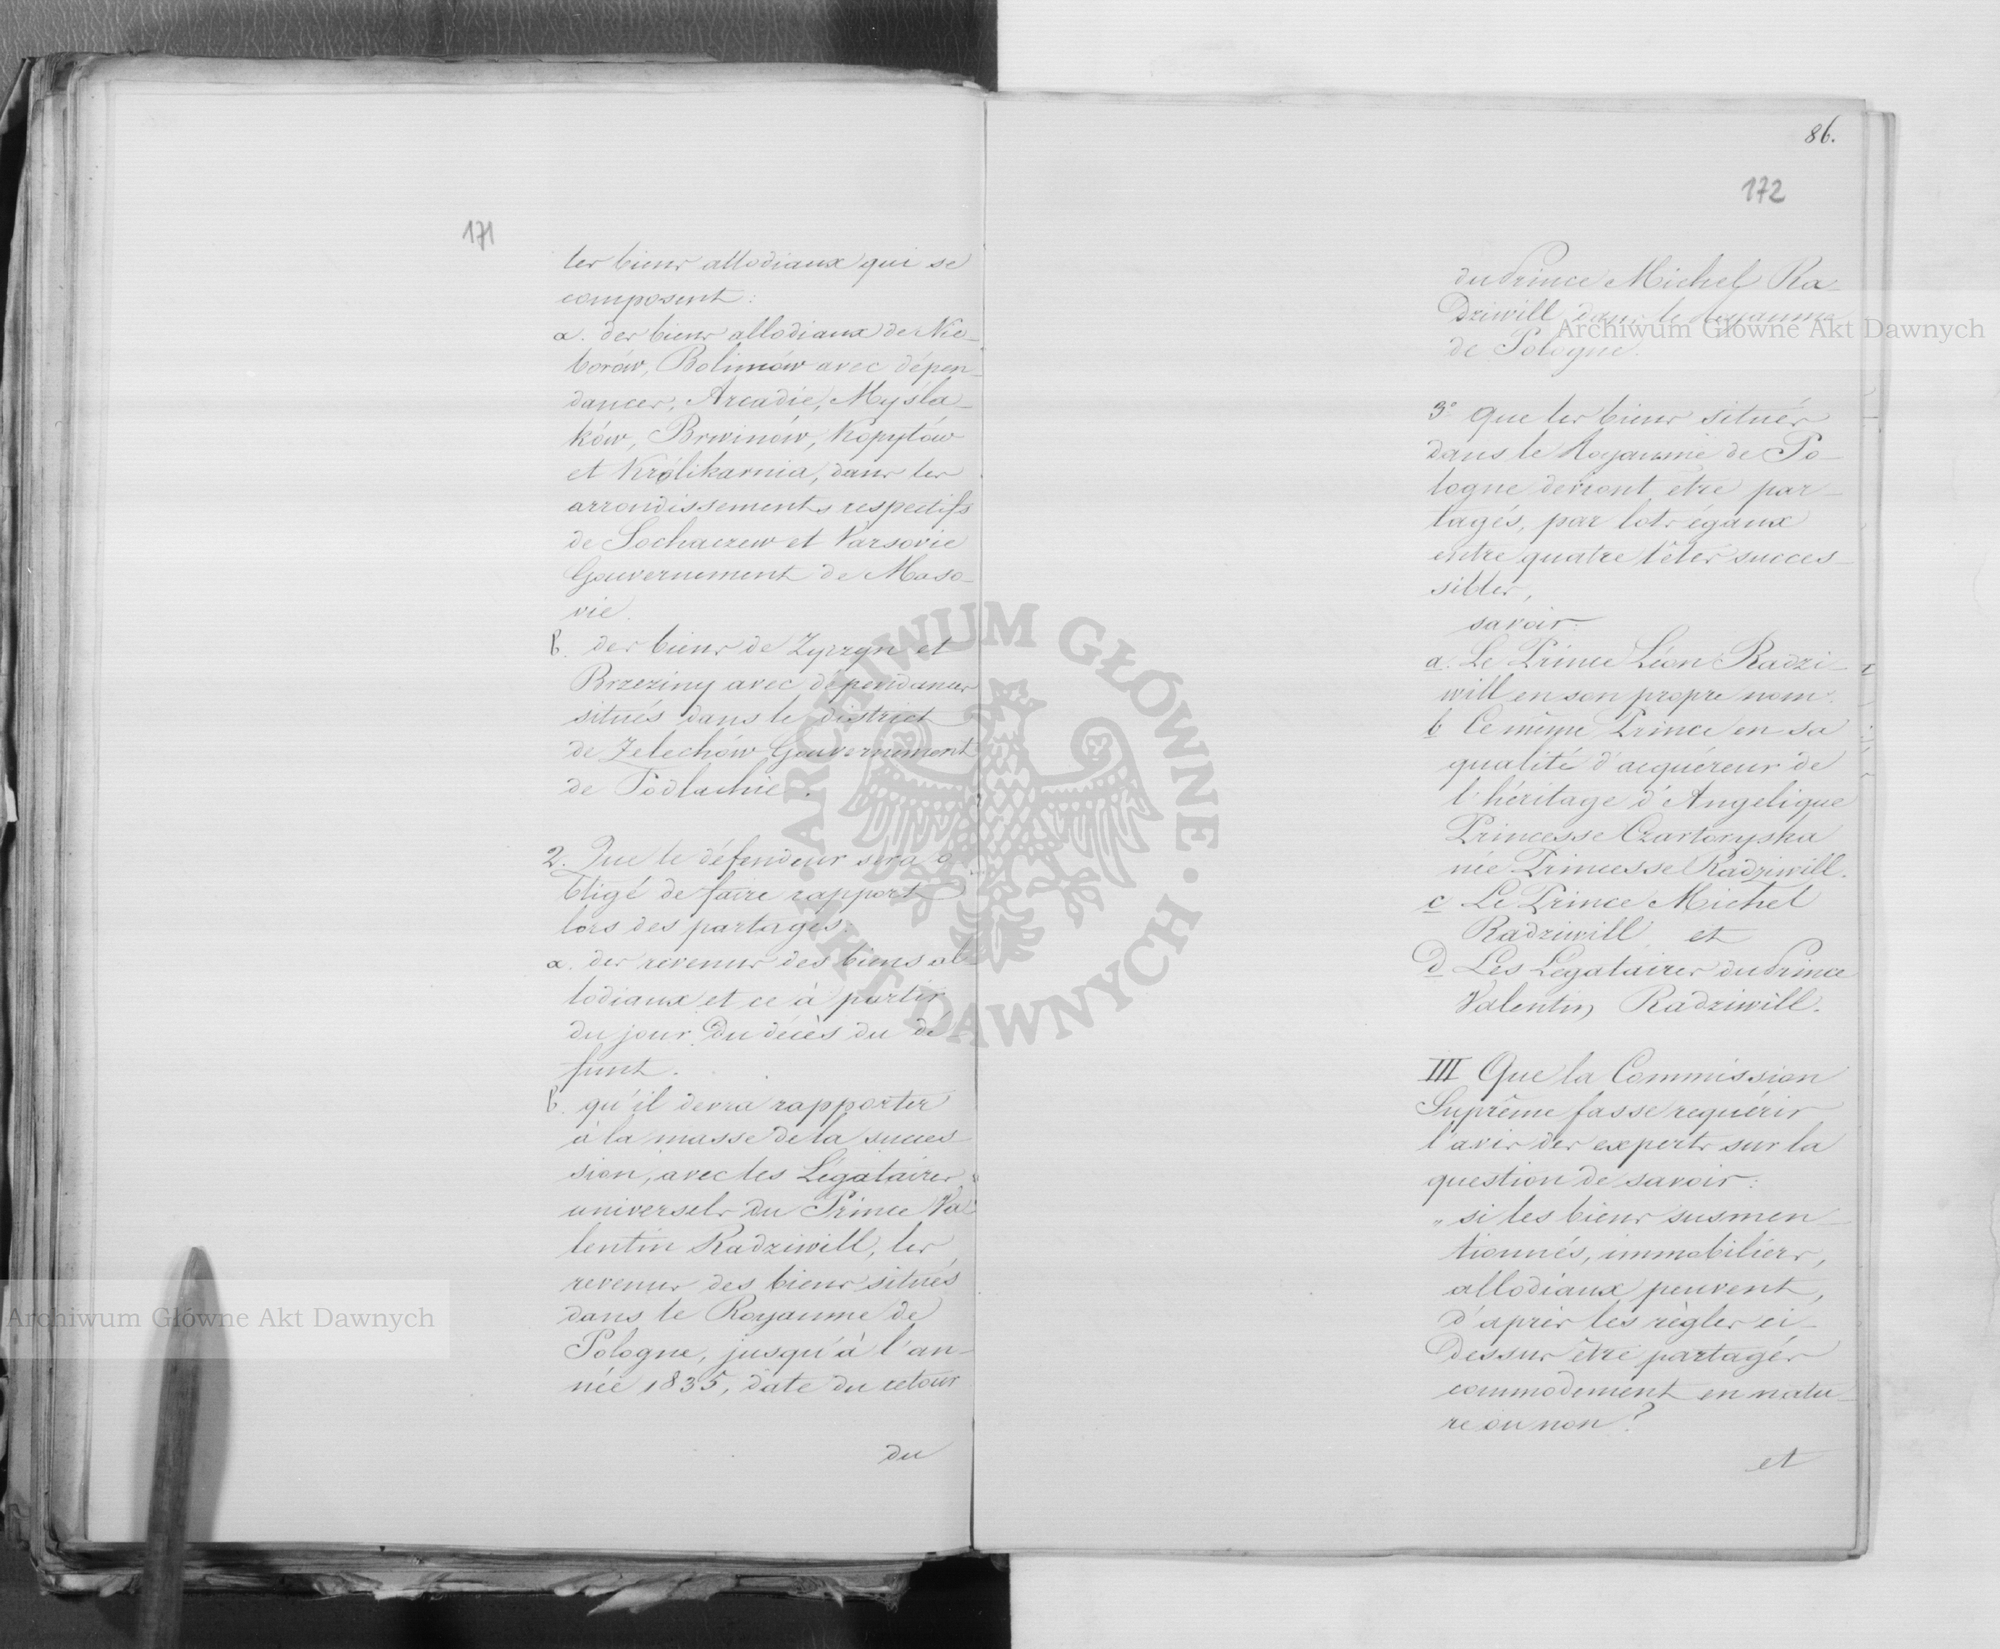 171
les biens allodiaux qui se
composent:
a. des biens allodiaux de Nie-
borów, Bolimów avec dépen-
dances, Arcadie, Myśla-
ków, Brwinów, Kopytów
et Królikarnia, dans les
arrondissements respectifs
de Sochaczew et Varsovie
Gouvernement de Maso-
vie.
b. des biens de Zyrzyn et
Brzeziny avec dépendances
situés dans le district
de Zelechów Gouvernement
de Podlachie.
2. Que le défendeur sera o-
bligé de faire rapport
lors des partages:
a. des revenus des biens al-
lodiaux et ce à partir
du jour du décès du dé-
funt.
b. qu'il devra rapporter
à la masse de la succes-
sion, avec les Légataires
universels du Prince Va-
lentin Radziwill, les
revenus des biens situés
dans le Royaume de
Pologne, jusqu'à l'an-
née 1835, date du retour
du
86.
172
du Prince Michel Ra-
dziwill dans le Royaume
de Pologne.
3° Que les biens situés
dans le Royaume de Po-
logne devront être par-
tagés, par lots égaux
entre quatre têtes succes-
sibles,
savoir:
a. Le Prince Léon Radzi-
will en son propre nom.
b Le même Prince en sa
qualité d'acquéreur de
l'héritage d'Angelique
Princesse Czartoryska
née Princesse Radziwill.
c Le Prince Michel
Radziwill, et
d Les Légataires du Prince
Valentin Radziwill.
III Que la Commission
Suprême fasse requérir
l'avis des experts sur la
question de savoir:
„ si les biens susmen-
tionnés, immobiliers,
allodiaux peuvent,
d'après les règles ci-
dessus être partagés
commodement en natu-
re ou non?
et
Archiwum Główne Akt Dawnych
Archiwum Główne Akt Dawnych
• ARCHIWUM GŁÓWNE • AKT DAWNYCH